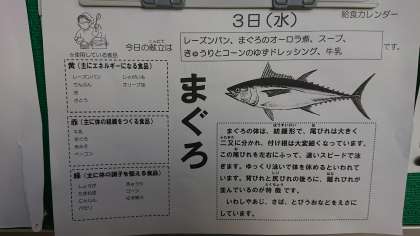 3日(水)
給食カレンダー
今日の献立は
レーズンパン、まぐろのオーロラ煮、スープ、
きゅうりとコーンのゆずドレッシング、牛乳
です。
☆使用している食品
黄(主にエネルギーになる食品)
レーズンパン
じゃがいも
でんぷん
オリーブ油
さとう
赤(主に体の組織をつくる食品)
牛乳
まぐろ
ベーコン
緑(主に体の調子を整える食品)
しょうが
きゅうり
たまねぎ
コーン
にんじん
パセリ
まぐろ
まぐろの体は、紡錘形で、尾びれは大きく
二又に分かれ、付け根は大変細くなっています。
この尾びれを左右にふって、速いスピードで泳
ぎます。ゆっくり泳いで体を休めるといわれて
います。背びれと尻びれの後ろに、離れひれが
並んでいるのが特徴です。
いわしやあじ、さば、とびうおなどをえさに
しています。